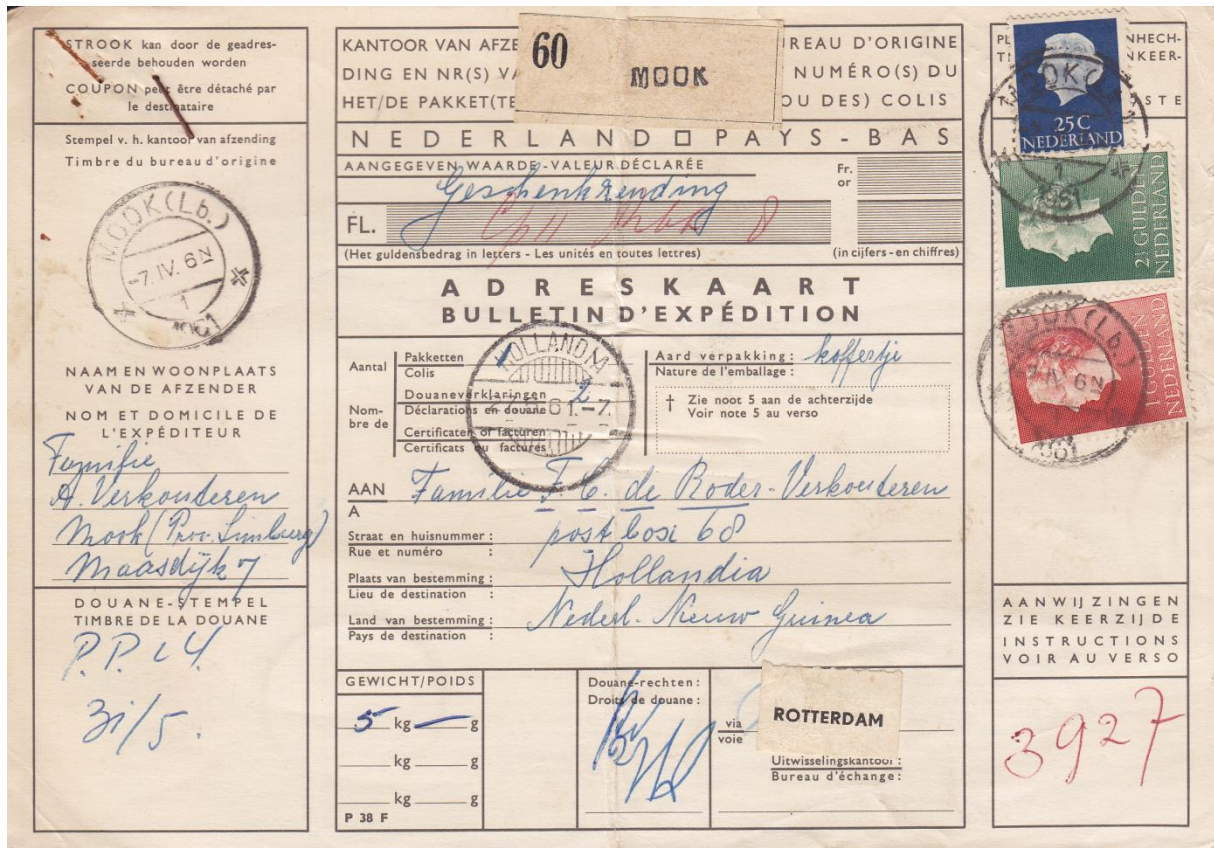 STROOK kan door de geadres-
seerde behouden worden
COUPON peut être détaché par
le destinataire
Stempel v. h. kantoor van afzending
Timbre du bureau d'origine
MOOK (Lb.)
-7.IV. 6N
1
1961
NAAM EN WOONPLAATS
VAN DE AFZENDER
NOM ET DOMICILE DE
L'EXPÉDITEUR
Familie
A. Verkouteren
Mook (Prov. Limburg)
Maasdijk 7
DOUANE-STEMPEL
TIMBRE DE LA DOUANE
31/5.
KANTOOR VAN AFZE
REAU D'ORIGINE
DING EN NR(S) VA
NUMÉRO(S) DU
HET/DE PAKKET(TE
OU DES) COLIS
60
MOOK
NEDERLAND PAYS-BAS
AANGEGEVEN WAARDE-VALEUR DÉCLARÉE
Fr.
or
Geschenkzending
FL.
8
(Het guldensbedrag in letters - Les unités en toutes lettres)
(in cijfers - en chiffres)
ADRESKAART
BULLETIN D'EXPÉDITION
Aantal
Pakketten
Colis
1
Nom-
bre de
Douaneverklaringen
Déclarations en douane
2
Certificaten of facturen
Certificats ou factures
HOLLANDIA
61.-7.
Aard verpakking : koffertje
Nature de l'emballage :
† Zie noot 5 aan de achterzijde
Voir note 5 au verso
AAN Familie F. C. de Roder-Verkouteren
A
Straat en huisnummer : postbox 68
Rue et numéro :
Plaats van bestemming : Hollandia
Lieu de destination :
Land van bestemming : Nederl. Nieuw Guinea
Pays de destination :
GEWICHT/POIDS
5 kg — g
kg g
kg g
P 38 F
Douane-rechten :
Droits de douane :
via
voie
ROTTERDAM
Uitwisselingskantoor :
Bureau d'échange :
25 C
NEDERLAND
2½ GULDEN
NEDERLAND
1 GULDEN
NEDERLAND
MOOK (Lb.)
6N
1961
AANWIJZINGEN
ZIE KEERZIJDE
INSTRUCTIONS
VOIR AU VERSO
3927